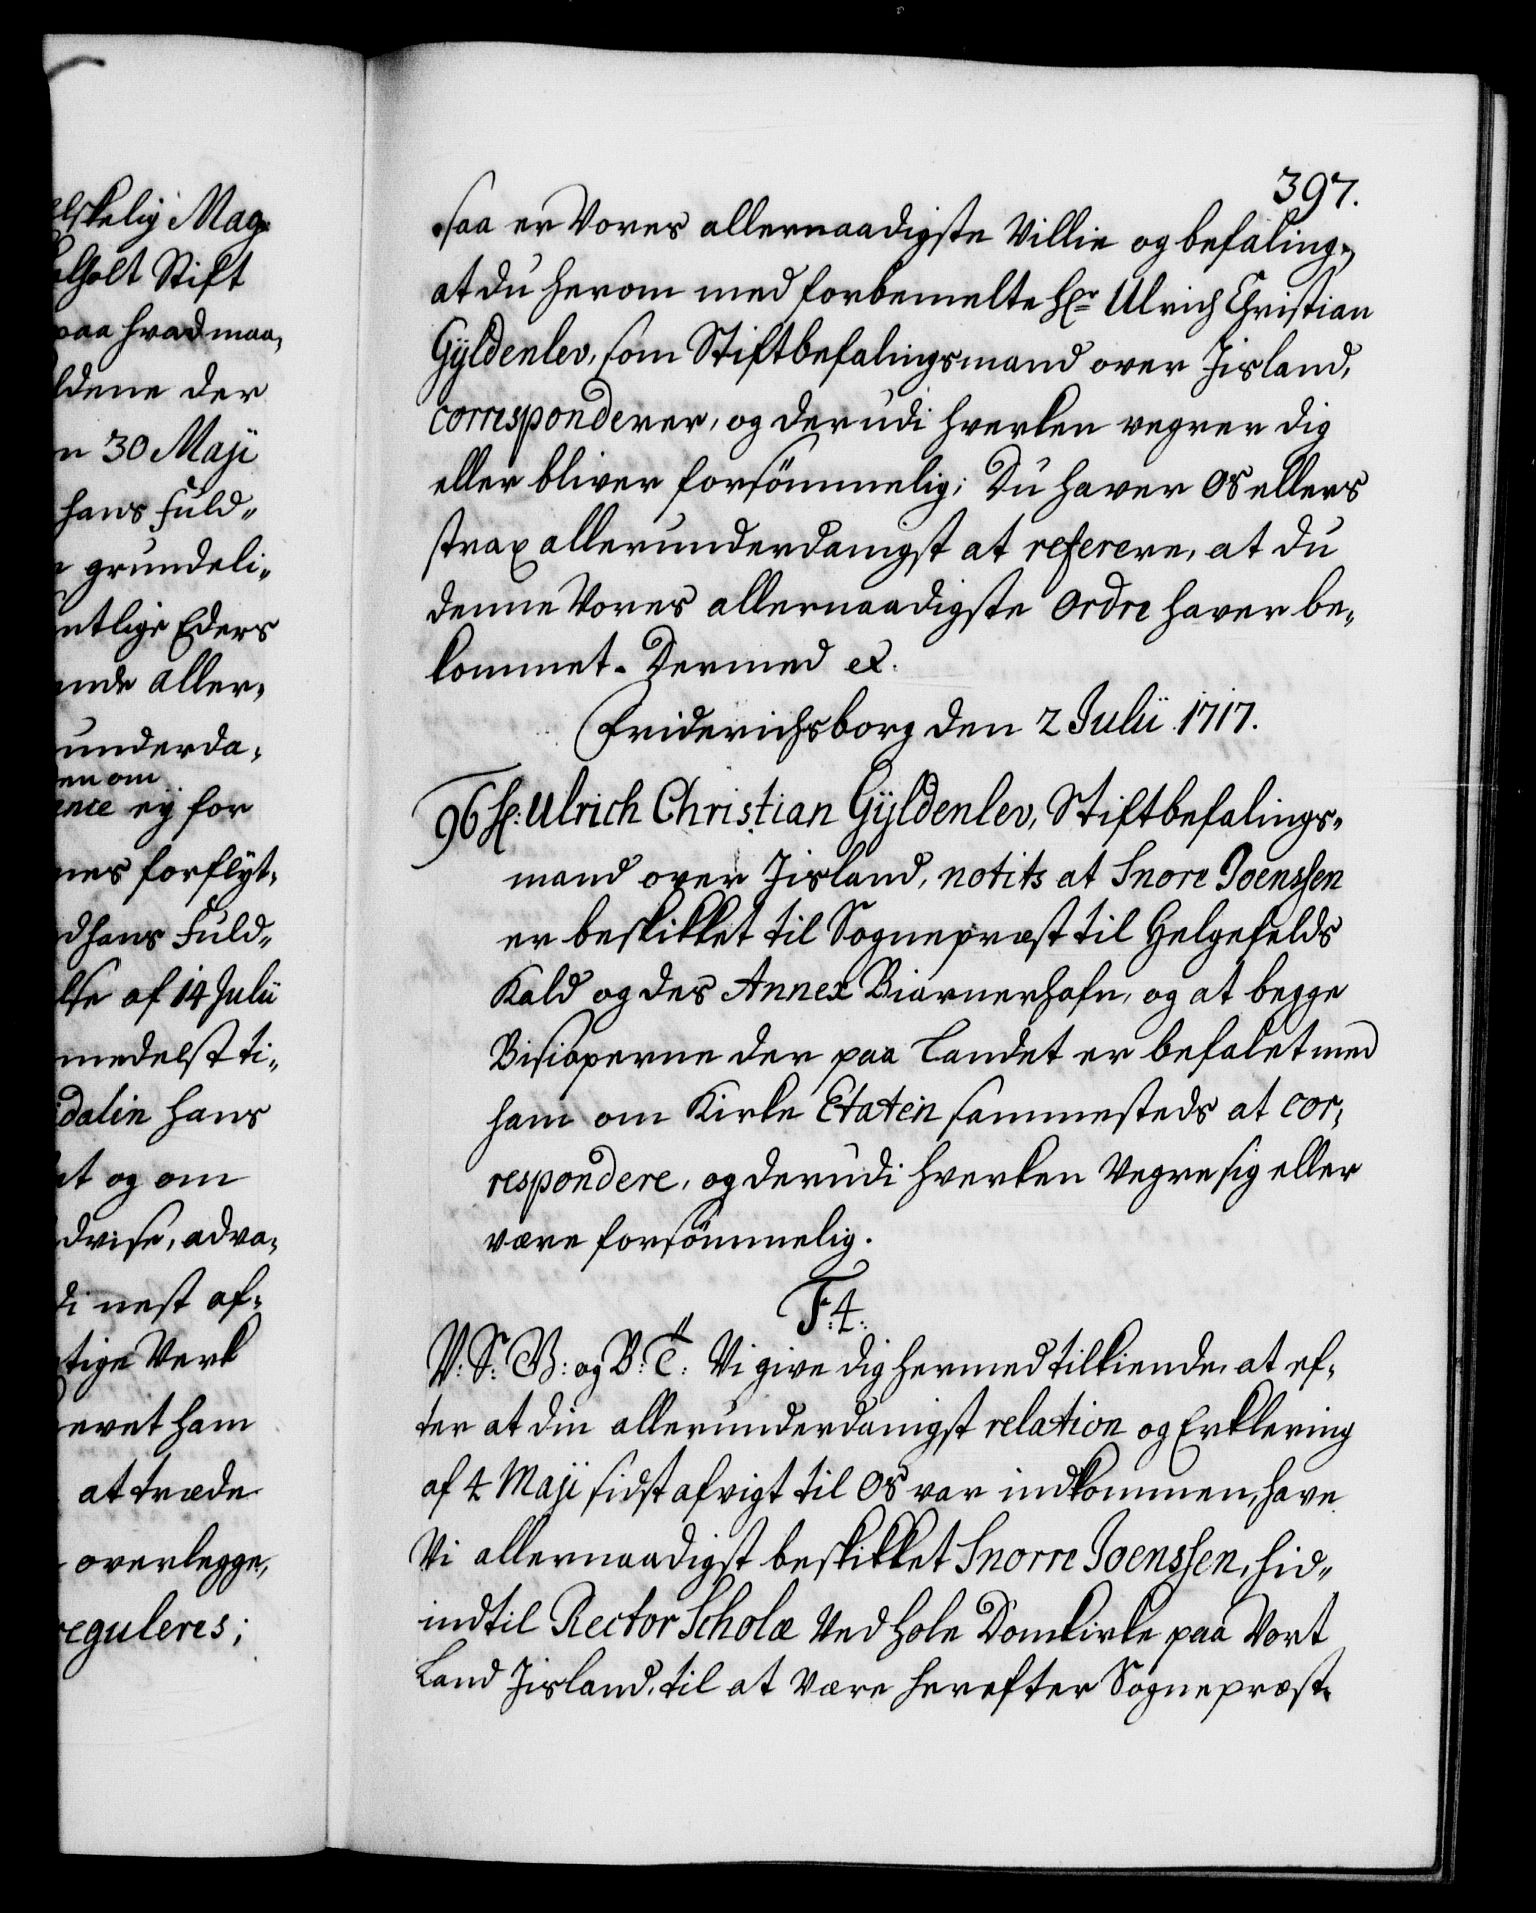 elskelig Mag„
alholt Stift
paa hvad maa„
ldene der
n 30 Maji
hans Fuld„
grundeli„
ntlige Eders
ende aller„
underda„
en om
ence ey for
nes forflyt„
d hans Fuld„
lse af 14 Julii
medelst ti„
dalin hans
et og om
dvise, adva„
di nest af„
tige Verk
evet ham
at træde
overlegge,
reguleres;
397.
saa er Vores allernaadigste Villie og befaling„
at du herom med forbemelte Hr Ulrich Christian
Gyldenlev, som Stiftbefalingsmand over Iisland,
corresponderer, og derudi hverken vegrer dig
eller bliver forsömmelig; Du haver Os ellers
strax allerunderdanigst at referere, at du
denne Vores allernaadigste Ordre haver be„
kommet. Dermed ex.
Friderichsborg den 2 Julii 1717.
96 H: Ulrich Christian Gyldenlev, Stiftbefalings„
mand over Iisland, notits at Snore Joenssen
er beskikket til Sognepræst til Helgefelds
Kald og des Annex Biarnerhafn, og at begge
Bisioperne der paa Landet er befalet med
ham om Kirke Etaten sammesteds at cor„
respondere, og derudi hverken Vegre sig eller
være forsömmelig.
F: 4.
V: S: G: og B: T: Vi give dig hermed tilkiende, at ef„
ter at din allerunderdanigst relation og Erklering
af 4 Maji sidst afvigt til Os var indkommen, have
Vi allernaadigst beskikket Snorre Joenssen, hid„
indtil Rector Scholæ Ved Hole Domkirke paa Vort
Land Iisland, til at Være herefter Sognepræst